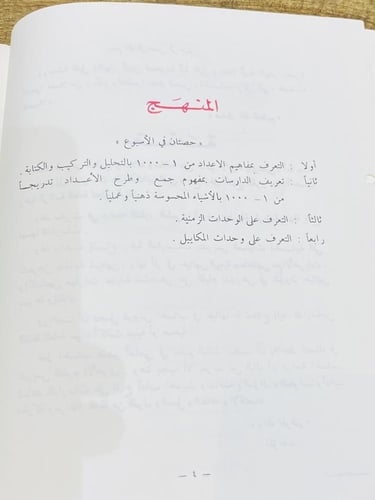 المنهـج
«حصتان في الأسبوع»
أولا : التعرف بمفاهيم الاعداد من ١ – ١٠٠٠ بالتحليل والتركيب والكتابة .
ثانياً : تعريف الدارسات بمفهوم جمع وطرح الأعداد تدريجياً
من ١ – ١٠٠٠ بالأشياء المحسوسة ذهنياً وعملياً .
ثالثاً : التعرف على الوحدات الزمنية .
رابعاً : التعرف على وحدات المكاييل .
– ٤ –